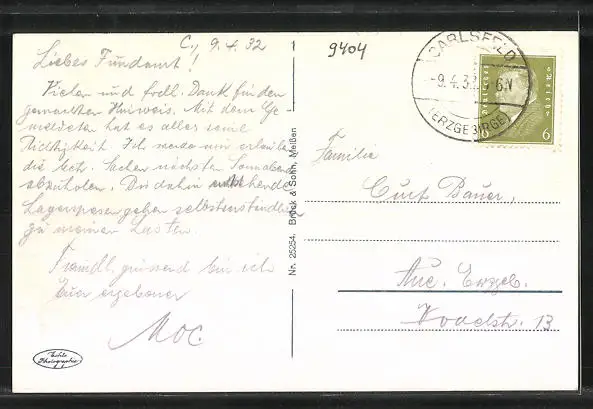 C., 9.4.32
Liebes Fundamt!
Vielen und frdl. Dank für den
gemachten Hinweis. Mit dem Ge-
meldeten hat es alles seine
Richtigkeit. Ich werde mir erlauben
die Sachen nächsten Sonnabend
abzuholen. Bis dahin
Lagerspesen gehen selbstverständlich
zu meinen Lasten
Freundl. grüssend bin ich
Euer ergebener
Moc.
Echte
Photographie
Nr. 25254. Brück & Sohn, Meißen
9404
CARLSFELD
-9.4.32. 6-V
(ERZGEBIRGE)
Deutsches Reich
6 6
Familie
Curt Bauer,
Aue. Erzgeb.
13